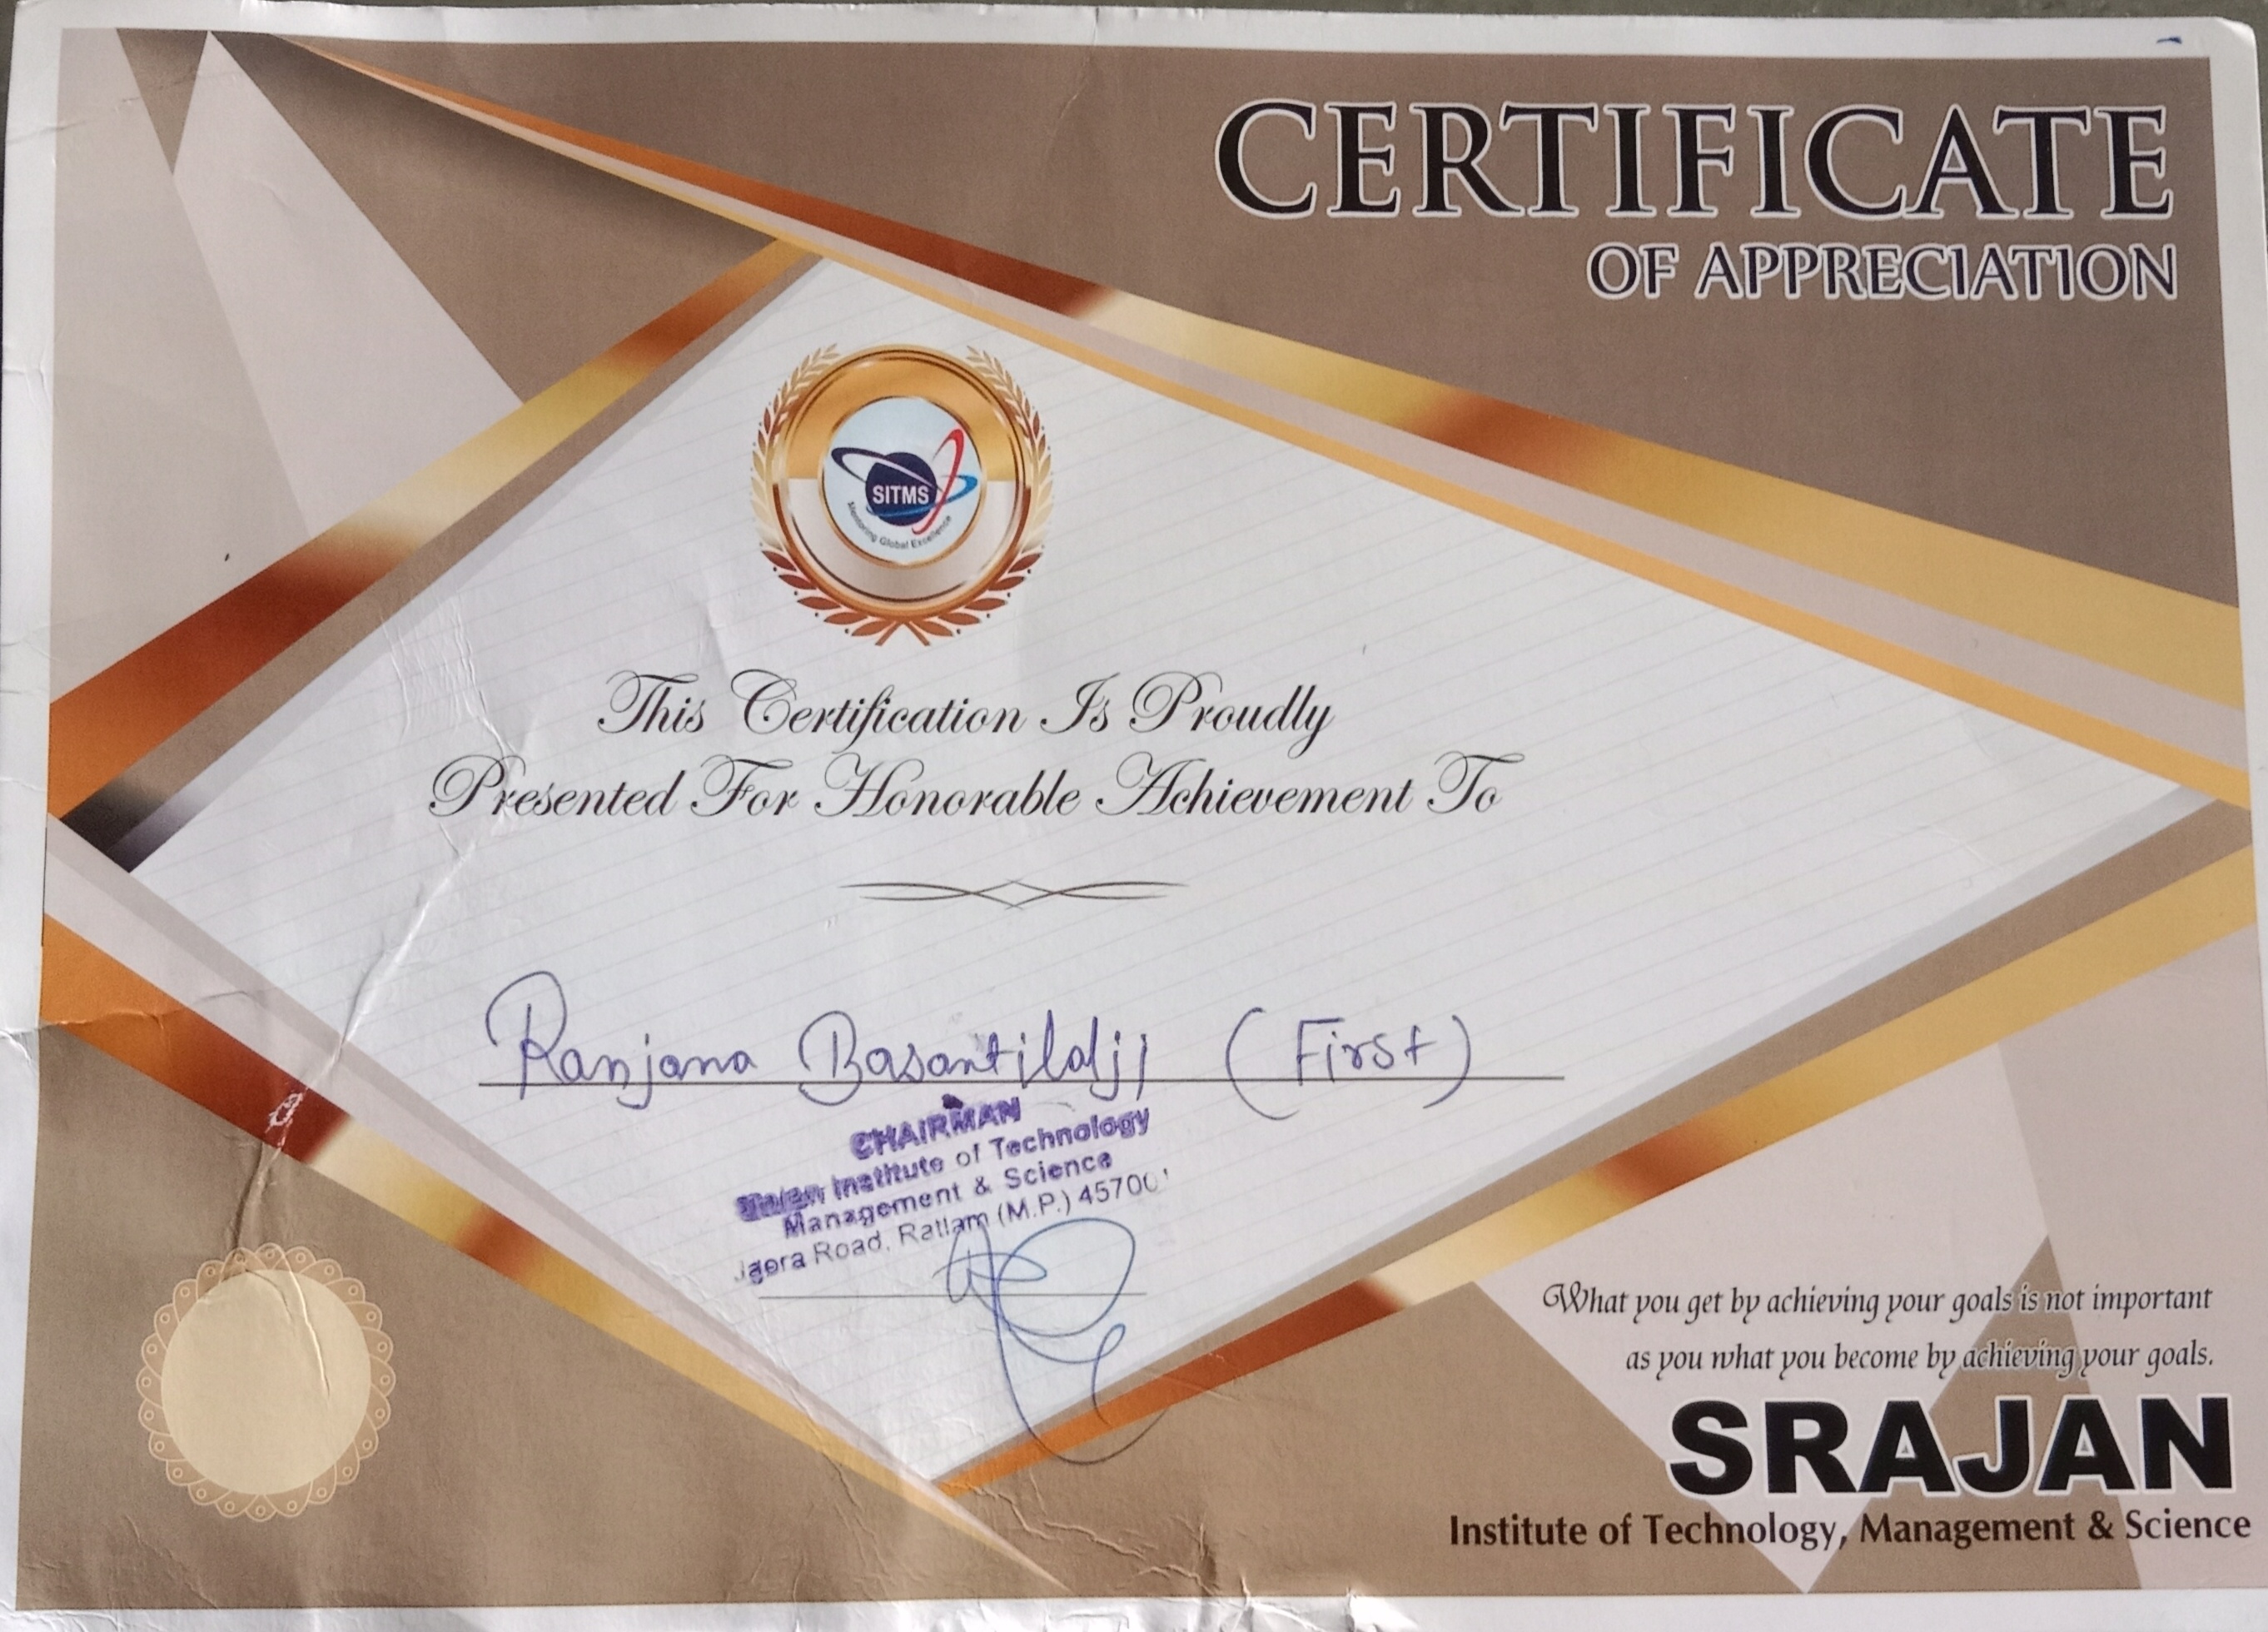 CERTIFICATE
OF APPRECIATION
SITMS
Mentoring Global Excellence
This Certification Is Proudly
Presented For Honorable Achievement To
Ranjana Basantilalji (First)
CHAIRMAN
Institute of Technology
Management & Science
Road, Ratlam (M.P.)
What you get by achieving your goals is not important
as you what you become by achieving your goals.
SRAJAN
Institute of Technology, Management & Science